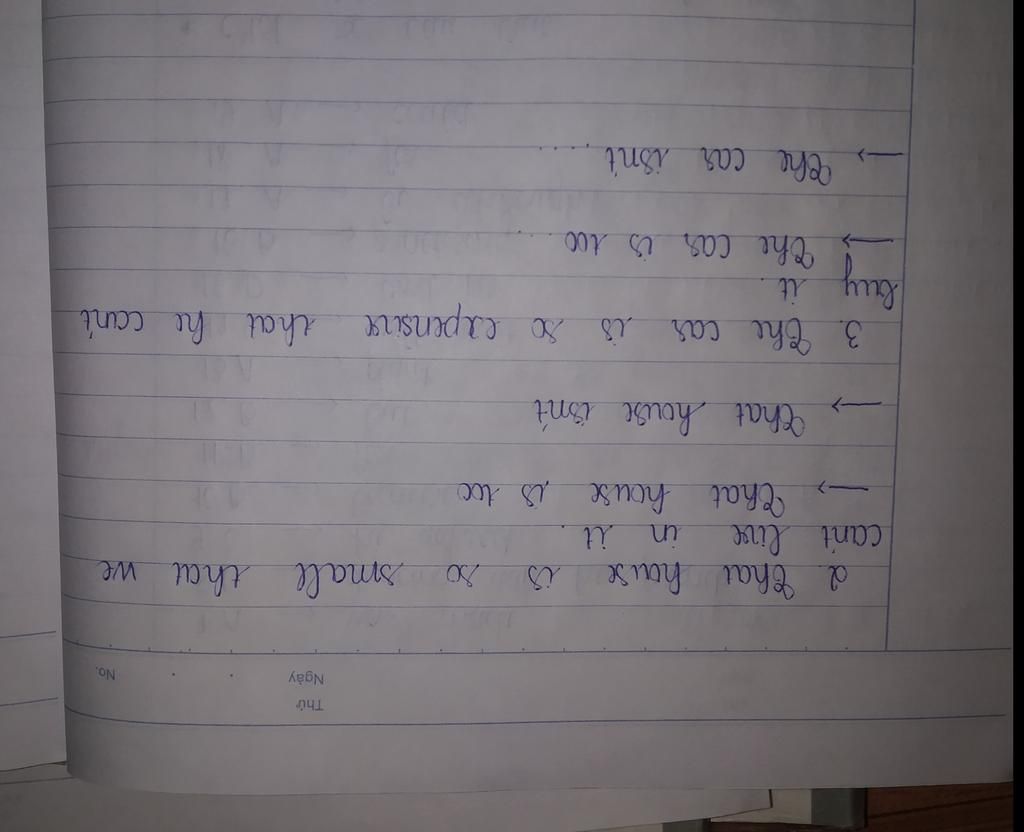 Thứ
Ngày
No.
2. That house is so small that we
can't live in it.
→ That house is too
→ That house isn't
3. The car is so expensive that he can't
buy it.
→ The car is too ...
→ The car isn't ....